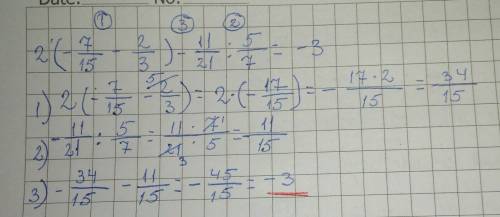 Date: No.
① ③ ②
2·(-7/15 - 2/3) - 11/21 : 5/7 = -3
1) 2(-7/15 - 2/3⁵) = 2·(-17/15) = -17·2/15 = 34/15
2) -11/21 : 5/7 = 11·7¹/21₃·5 = 11/15
3) -34/15 - 11/15 = -45/15 = -3